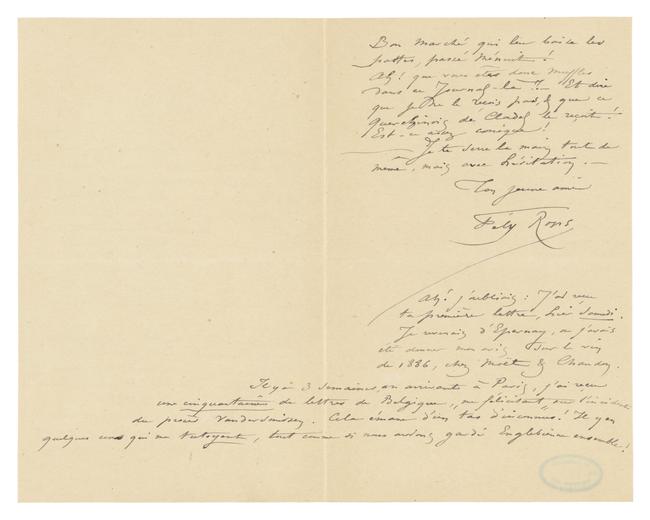 Bon Marché qui leur baise les
pattes, passé Ménuit !
Ah! que vous êtes donc muffles
dans ce Journal-là ?— Et dire
que je ne le reçois pas, & que ce
Quercynois de Cladel le reçoit !
Est-ce assez comique !
— Je te serre la main tout de
même, mais avec hésitation. —
Ton jeune ami
Fély Rops
Ah! j'oubliais : J'ai reçu
ta première lettre, hier Samedi.
Je revenais d'Epernay, où j'avais
été donner mon avis sur le vin
de 1886, chez Moët & Chandon.
Il y a 3 semaines en arrivant à Paris, j'ai reçu
une cinquantaine de lettres de Belgique, me félicitant sur l'incident
du procès Vandersmissen. Cela émane d'un tas d'inconnus! Il y en
quelques uns qui me tutoyent, tout comme si nous avions gardé Englebienne ensemble!